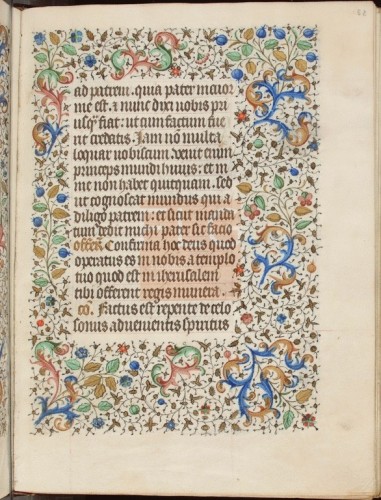 ad patrem. quia pater maior
me est. a nunc dixi nobis pri
usq̃ fiat: ut cum factum fue
rit credatis. Iam nō multa
loquar uobiscum. uenit enim
princeps mundi huius: et in
me non habet quicquam. sed
ut cognoscat mundus quia
diligo patrem: et sicut manda
tum dedit michi pater sic facio
offer̃. Confirma hoc deus quod
operatus es in nobis a templo
tuo quod est in iherusalem
tibi offerent reges munera.
cō. Factus est repente de celo
sonus aduenientis spiritus